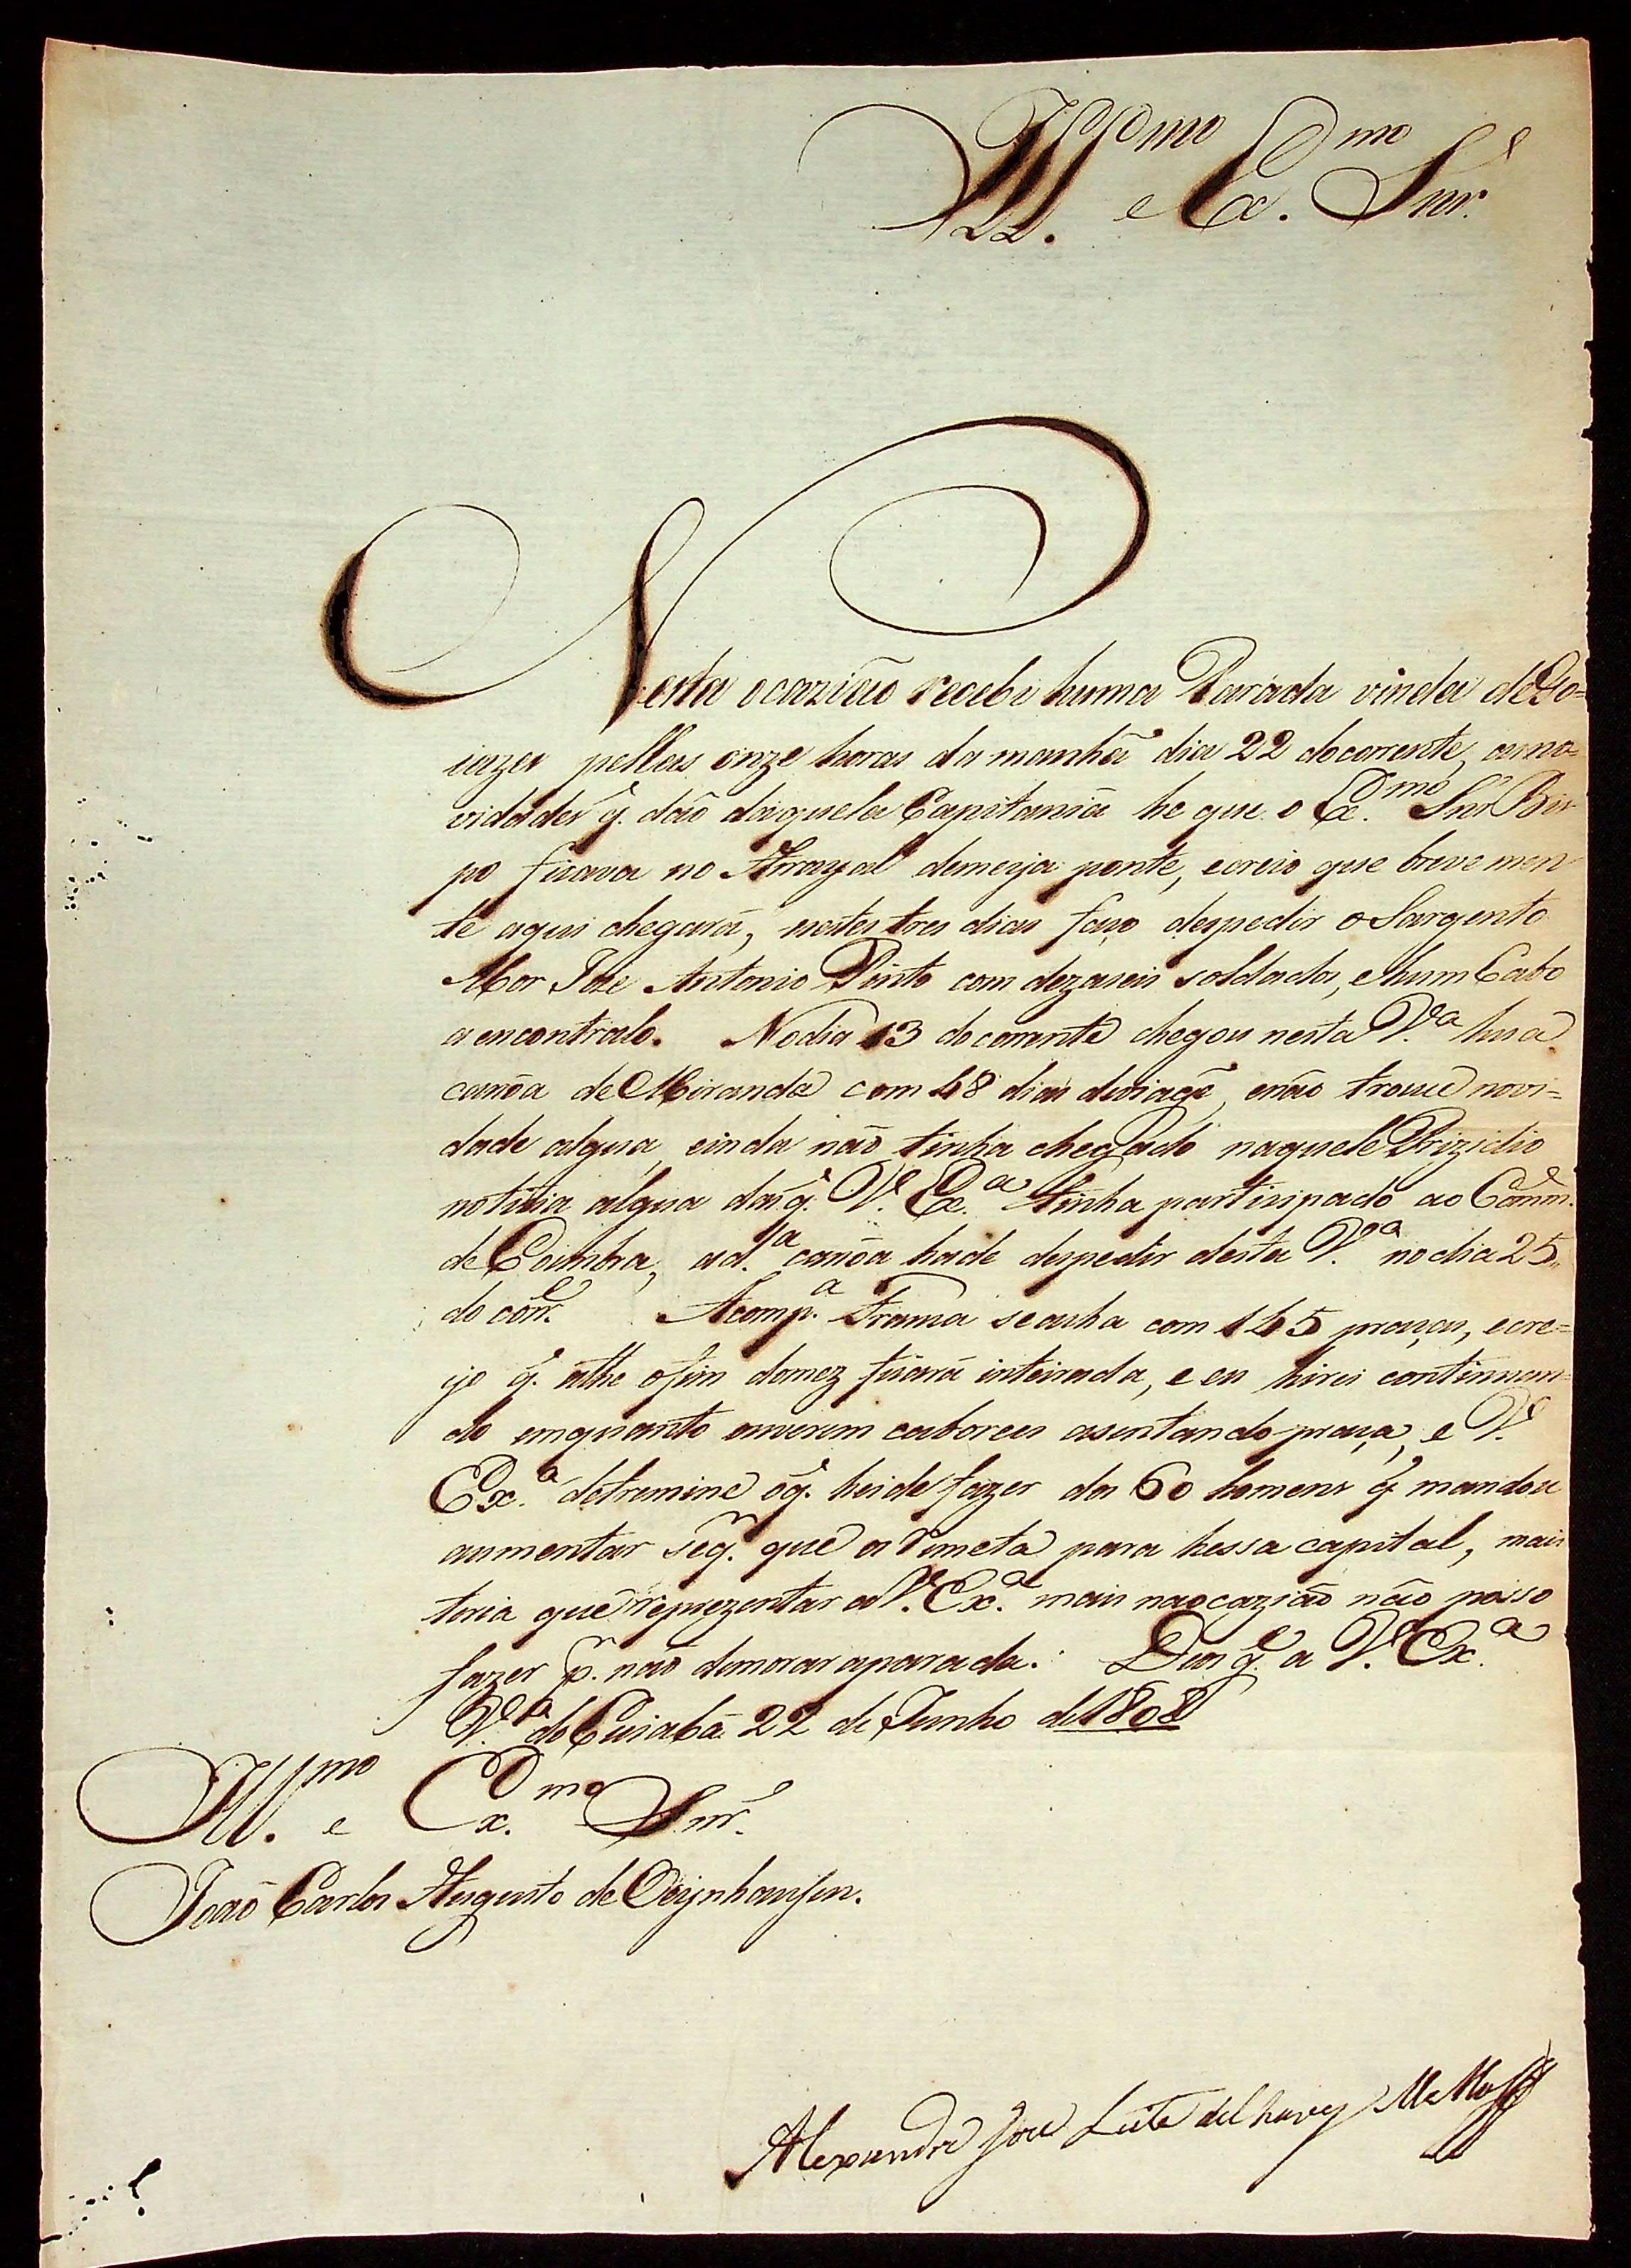 Ill.mo e Ex.mo Snr.
Nesta ocazião recebi huma Parada vinda de Go=
iazes pellas onze horas da manhã dia 22 docorrente, as no=
vidades q. dão daquela Capitania he que o Ex.mo Snr Bis
po ficava no Arrayal demeija ponte, ecreio que breve men
te aqui chegará, nestes tres dias faço despedir o Sargento
Mor Joze Antonio Pinto com dezaseis soldados, ehum Cabo
a encontralo. Nodia 13 docorrente chegou nesta V.a hua
canôa de Miranda com 48 dias deviagẽ, enão trouce novi=
dade algua, einda não tinha chegado naquele Prizidio
noticia algua das q. V. Ex.a tinha partisipado ao Comm.e
de Coimbra, ad.a canôa hade despedir desta V.a nodia 25,,
do corr.e Acomp.a Franca seacha com 145 praças, ecre=
yo q. athe ofim domez ficará inteirada, e eu hirei continuan=
do emquanto ouverem cabores asentando praça, e V.
Ex.a detremine oq. heide fazer dos 60 homens q. mandou
aumentar seq. que os rimeta para hessa capital, mais
teria que reprezentar a V. Ex.a mais naocazião não posso
fazer p.r não demorar aparada. Deos g.e a V. Ex.a
V.a do Cuiabá 22 de Junho de 1808
Ill.mo e Ex.mo Snr.
João Carlos Augusto de Oeynhausen.
Alexandre Joze Leite deChaves Mello